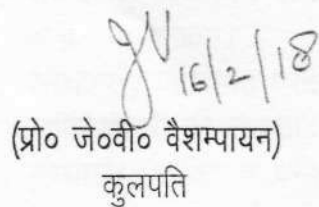 16/2/18
(प्रो० जे०वी० वैशम्पायन)
कुलपति